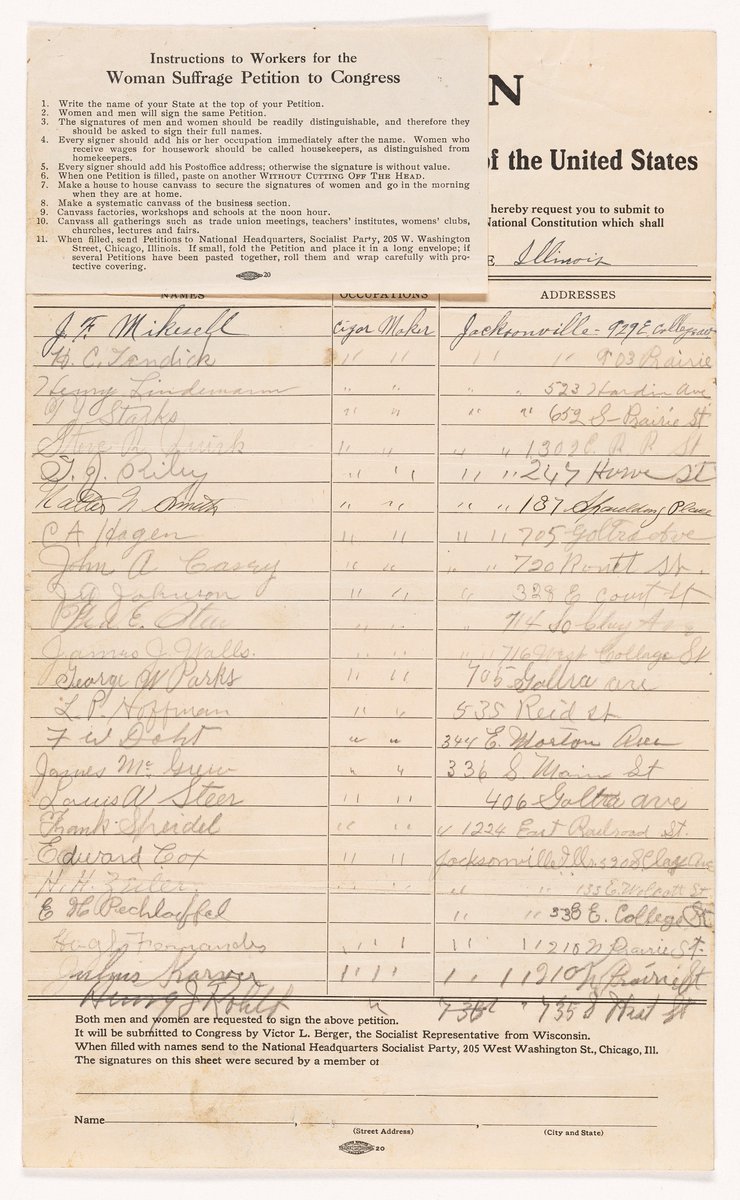 Instructions to Workers for the
Woman Suffrage Petition to Congress
1. Write the name of your State at the top of your Petition.
2. Women and men will sign the same Petition.
3. The signatures of men and women should be readily distinguishable, and therefore they
should be asked to sign their full names.
4. Every signer should add his or her occupation immediately after the name. Women who
receive wages for housework should be called housekeepers, as distinguished from
homekeepers.
5. Every signer should add his Postoffice address; otherwise the signature is without value.
6. When one Petition is filled, paste on another WITHOUT CUTTING OFF THE HEAD.
7. Make a house to house canvass to secure the signatures of women and go in the morning
when they are at home.
8. Make a systematic canvass of the business section.
9. Canvass factories, workshops and schools at the noon hour.
10. Canvass all gatherings such as trade union meetings, teachers' institutes, womens' clubs,
churches, lectures and fairs.
11. When filled, send Petitions to National Headquarters, Socialist Party, 205 W. Washington
Street, Chicago, Illinois. If small, fold the Petition and place it in a long envelope; if
several Petitions have been pasted together, roll them and wrap carefully with pro-
tective covering.
20
N
of the United States
hereby request you to submit to
National Constitution which shall
E Illinois
NAMES OCCUPATIONS ADDRESSES
J. F. Mikesell Cigar Maker Jacksonville - 929 E. College av
H. C. Tendick " " " " 903 Prairie
Henry Lindemann " " 523 Hardin Ave
Starks " " " " 652 S - Prairie St
" " " " 1302 E. R R St
T. J. Riley " " " " 247 Howe St
Walter N. Smith " " " " 137 Spaulding Place
C A Hagen " " " " 705 Goltra ave
John A Casey " " " " 720 Routt St.
Johnson " " " 328 E Court St
E. " " 714 So Clay Ave
James J. Walls. " " " " 716 West College St
George W Parks " " 705 Goltra ave
L. P. Hoffman " " 535 Reid st
F W Doht " " 344 E. Morton Ave
James Mc Grew " " 336 S Main St
Louis W Steer " " 406 Goltra ave
Frank Speidel " " " 1224 East Railroad St.
Edward Cox " " Jacksonville Ills. 520 S Clay Ave
H. H. " " " " 133 E. Wolcott St
E H Rechloeffel " " " " 338 E. College St
Hugh Fernandes " " " " " 210 N Prairie St.
Julius " " " " " " " 210 N Prairie St
Henry J. " 735 S West St
Both men and women are requested to sign the above petition.
It will be submitted to Congress by Victor L. Berger, the Socialist Representative from Wisconsin.
When filled with names send to the National Headquarters Socialist Party, 205 West Washington St., Chicago, Ill.
The signatures on this sheet were secured by a member of
Name
(Street Address) (City and State)
20